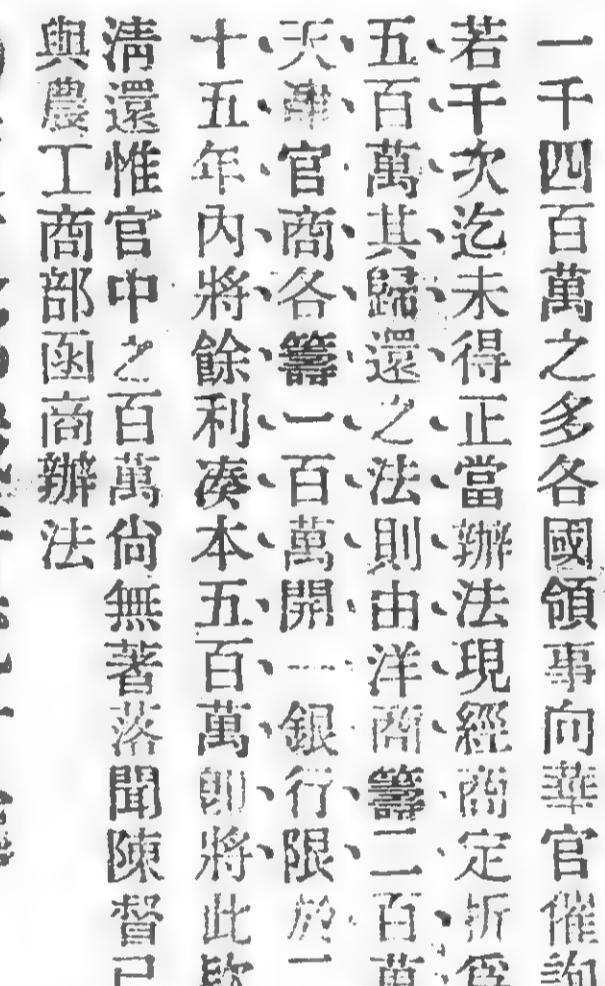 一千四百萬之多各國領事向華官催詢
若干次迄未得正當辦法現經商定折爲
五百萬其歸還之法則由洋商籌二百萬
天津官商各籌一百萬開一銀行限於二
十五年內將餘利湊本五百萬卽將此款
淸還惟官中之百萬尙無著落聞陳督已
與農工商部函商辦法